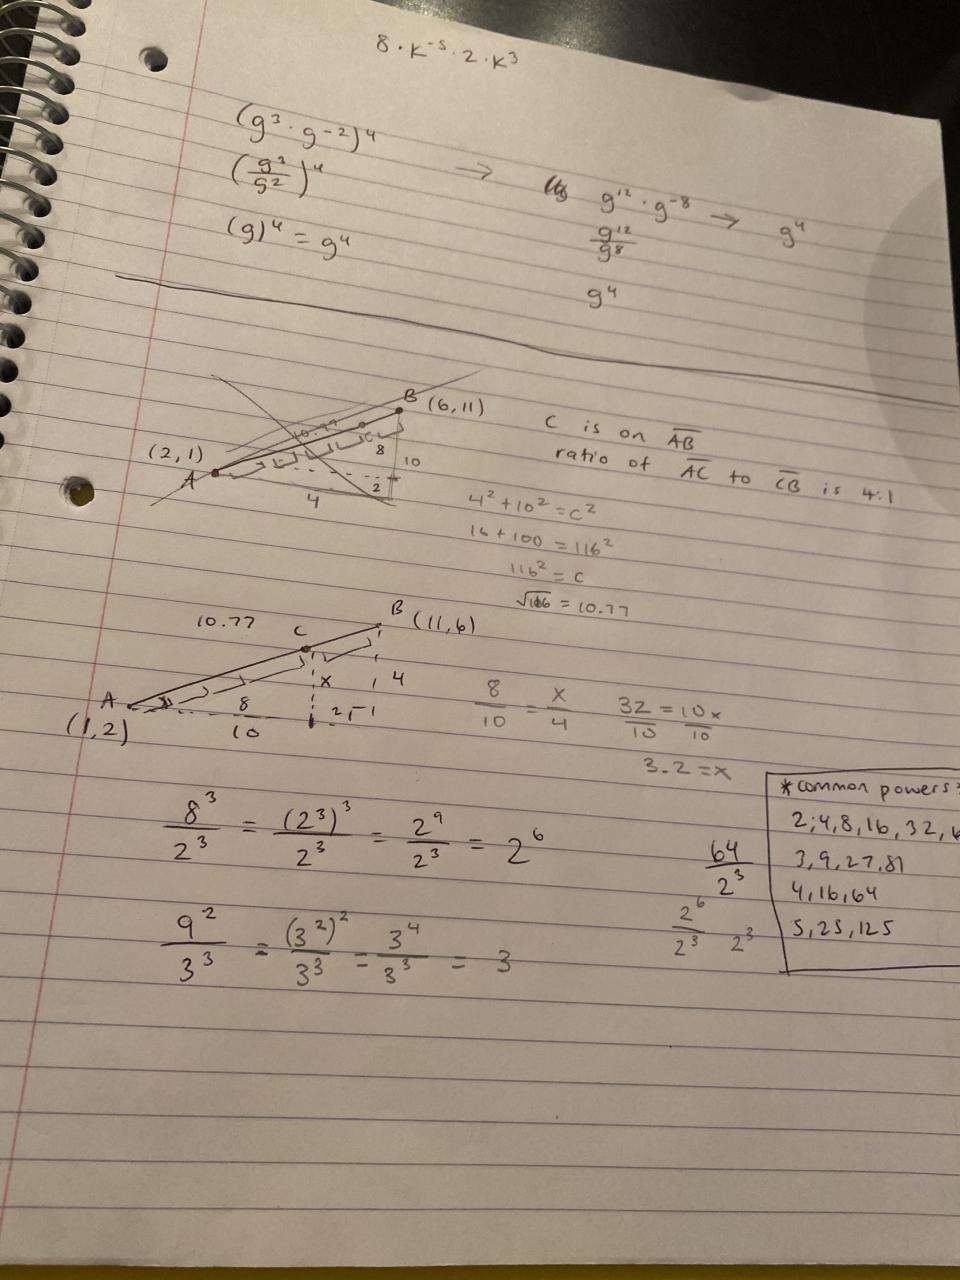 8 · k⁻⁵ · 2 · k³
(g³ · g⁻²)⁴
(g³/g²)⁴ → g¹² · g⁻⁸ → g⁴
(g)⁴ = g⁴
g¹²/g⁸
g⁴
B (6,11)
(2,1)
A
10.77
C
8
10
2
4
C is on A̅B̅
ratio of A̅C̅ to C̅B̅ is 4:1
4² + 10² = c²
16 + 100 = 116²
116² = c
√116 = 10.77
10.77
C
B (11,6)
A
(1,2)
x
4
8
2
10
8/10 = x/4
32/10 = 10x/10
3.2 = x
8³/2³ = (2³)³/2³ = 2⁹/2³ = 2⁶
9²/3³ = (3²)²/3³ = 3⁴/3³ = 3
64/2³
2⁶/2³ 2³
*common powers
2,4,8,16,32,
3,9,27,81
4,16,64
5,25,125